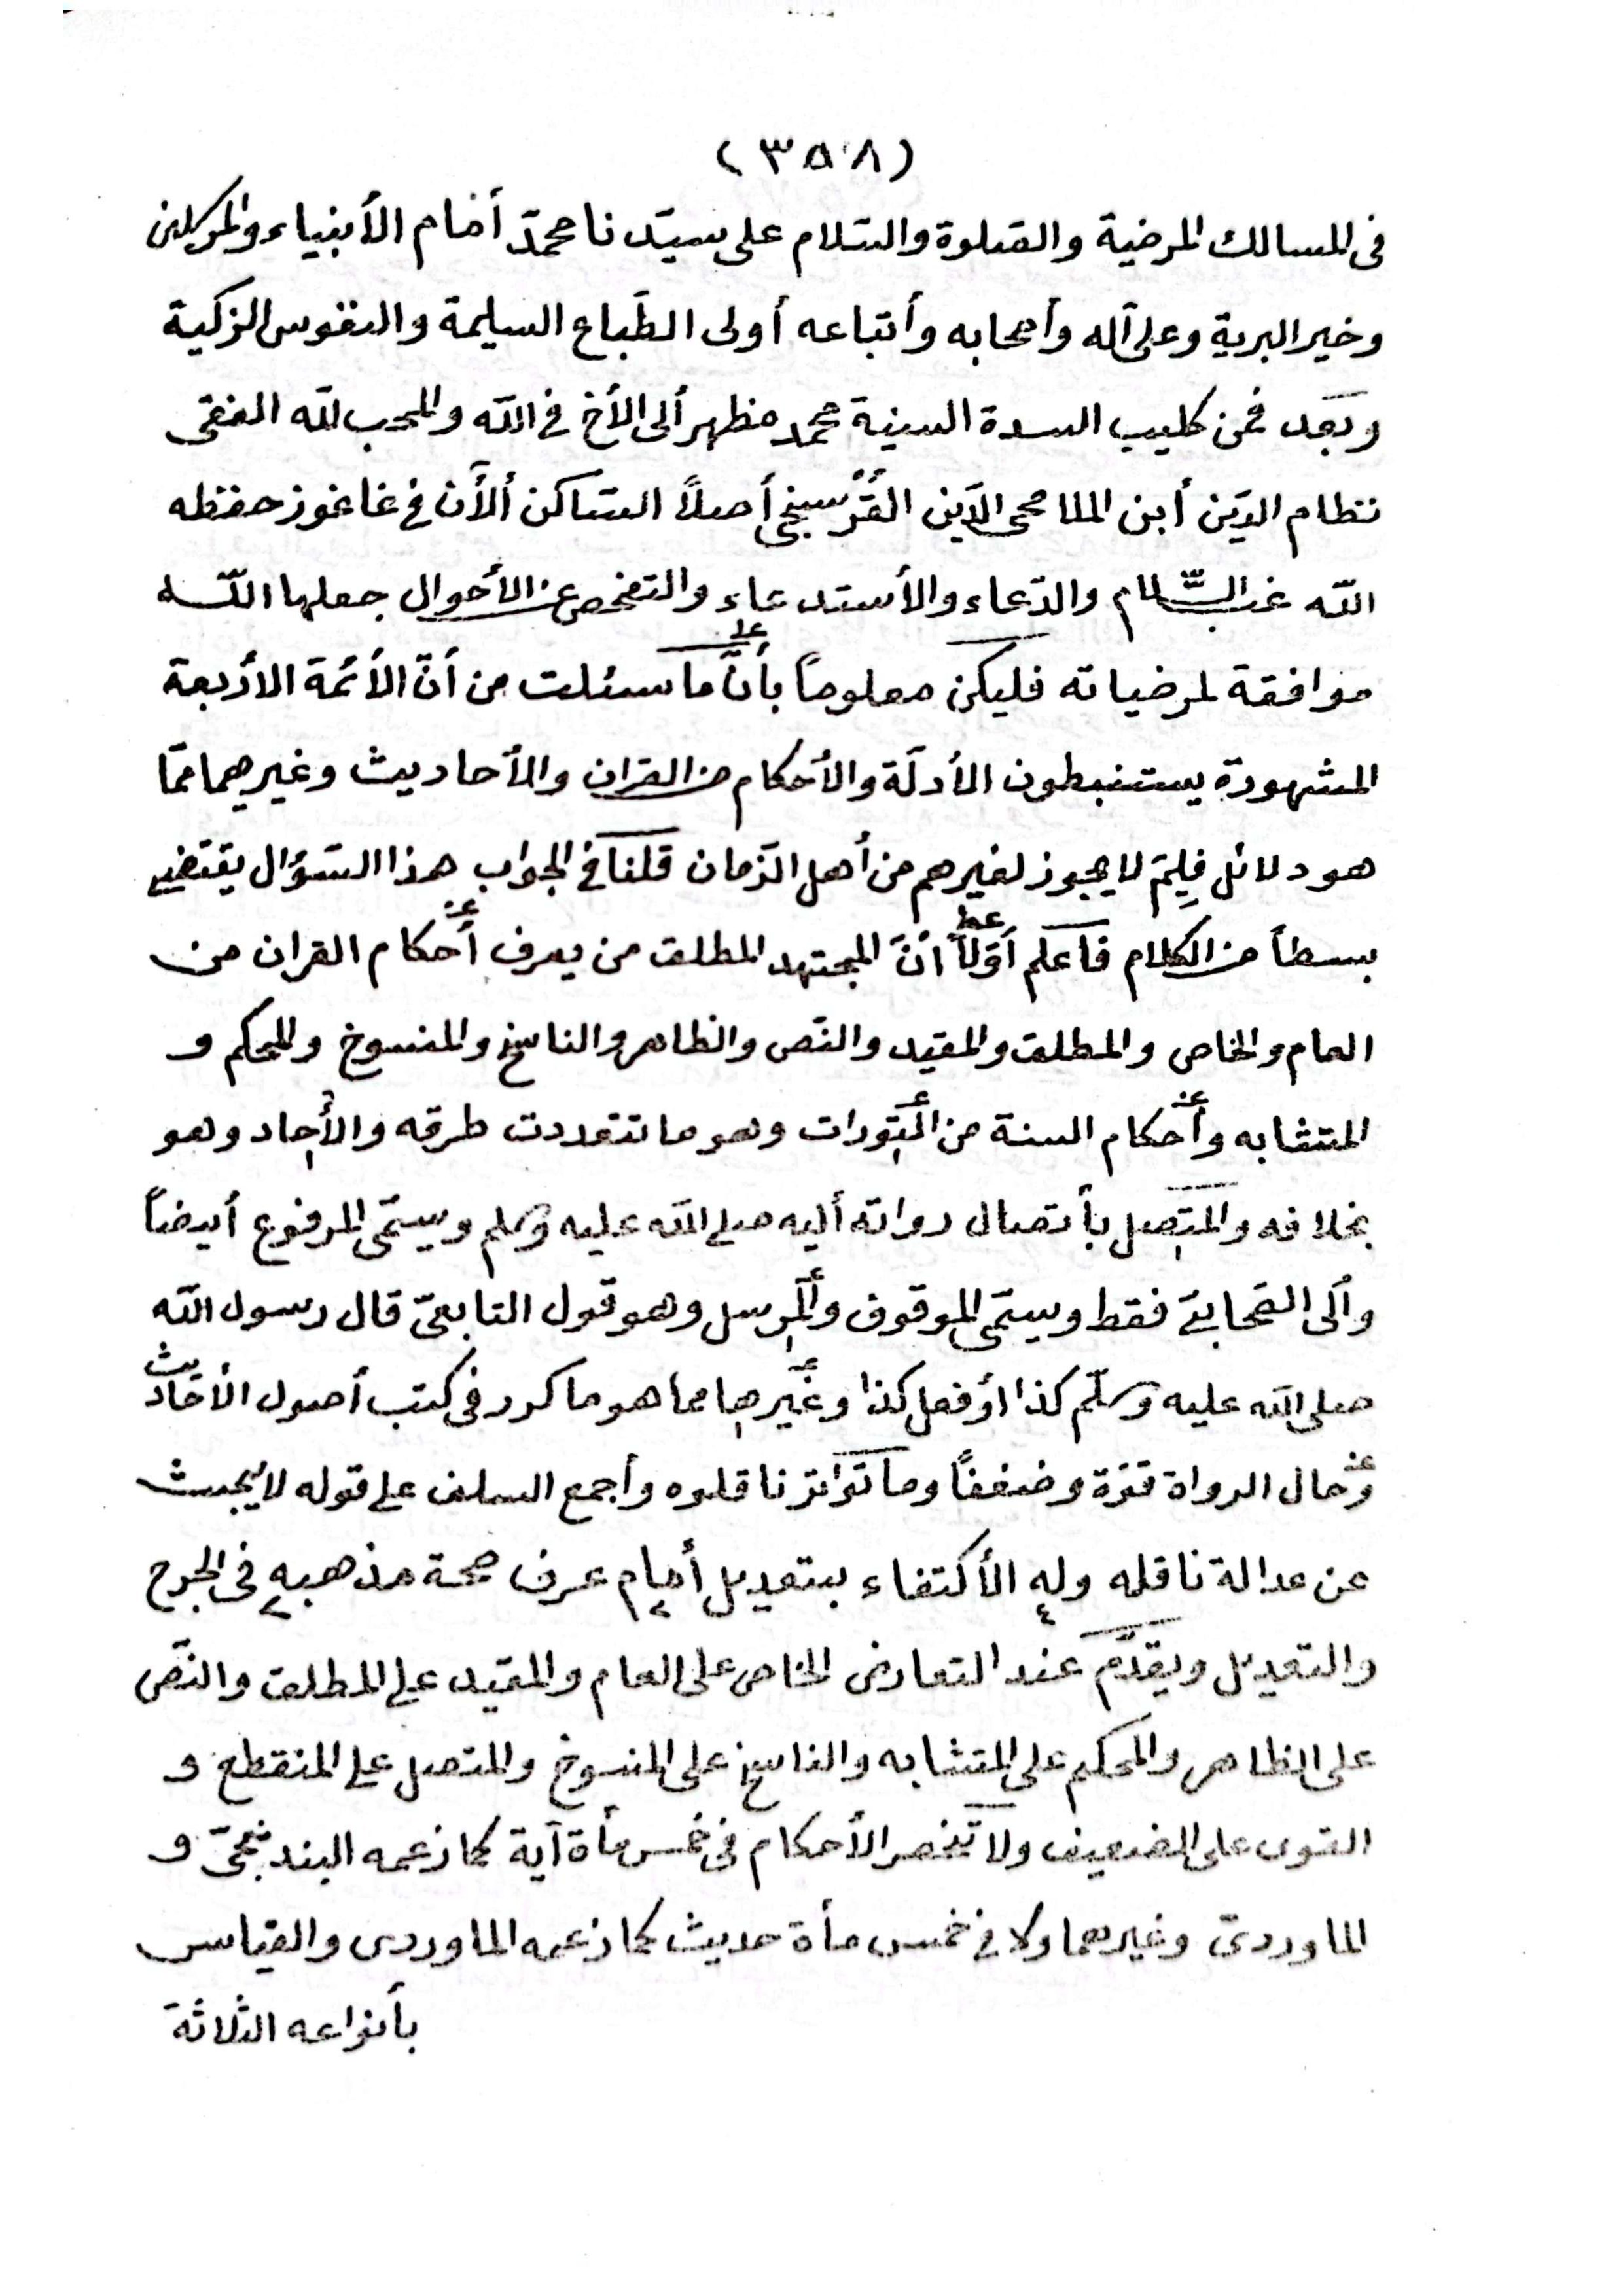 (٣٥٨)
فى المسالك المرضية والصلوة والسّلام على سيّدنا محمدّ أمام الأنبياء والمرسلين
وخير البرية وعلى آله وأصحابه وأتباعه أولى الطّباع السليمة والنفوس الزكية
وبَعد فمن كليب السدة السنية محمد مظهر ألى الأخ فى اللّه والمحب للّه الفقى
نظام الدّين أبن الملا محى الدّين القُرُسنجى أصلاً السّاكن ألأن فى غاغوز حفظه
اللّه غب السّلام والدّعاء والأستدعاء والتفحص عن الأحوال جعلها اللّه
موافقة لمرضياته فليكن معلوماً بأنّ ما سئلت من أنّ الأئمة الأربعة
المشهورة يستنبطون الأدلّة والأحكام من القران والأحاديث وغيرهما ممّا
هو دلائل فلِمَ لا يجوز لغيرهم من أهل الزّمان قلنا فى الجواب هذا السّؤال يقتضى
بسطاً من الكلام فأعلم أوّلاً أنّ المجتهد المطلق من يعرف أحكام القران من
العام والخاص والمطلق والمقيد والنّص والظاهر والناسخ والمنسوخ والمحكم و
المتشابه وأحكام السنة من المتورات وهو ما تعددت طرقه والأحاد وهو
بخلافه والمتّصل بأتصال رواته أليه صلى اللّه عليه وسلم ويسمّى المرفوع أيضاً
وألى الصّحابىّ فقط ويسمّى الموقوف والمرسل وهو قول التابعىّ قال رسول اللّه
صلى اللّه عليه وسلّم كذا أو فعل كذا وغيرها مما هو ما كرر فى كتب أصول الأحاديث
وحال الرواة قوّة وضعفاً وما تَواتر ناقلوه وأجمع السلف على قوله لا يُبحث
عن عدالة ناقله وله الأكتفاء بتعديل أمام عرف صحة مذهبه فى الجرح
والتعديل ويقدّم عند التعارض الخاص على العام والمقيد على المطلق والنّص
على الظاهر والمحكم على المتشابه والناسخ على المنسوخ والمتصل على المنقطع و
القوى على الضعيف ولا تنحصر الأحكام فى خمس مأة آية كما زعمه البندنيجىّ و
الماوردىّ وغيرهما ولا فى خمس مأة حديث كما زعمه الماوردى والقياس
بأنواعه الثلاثة